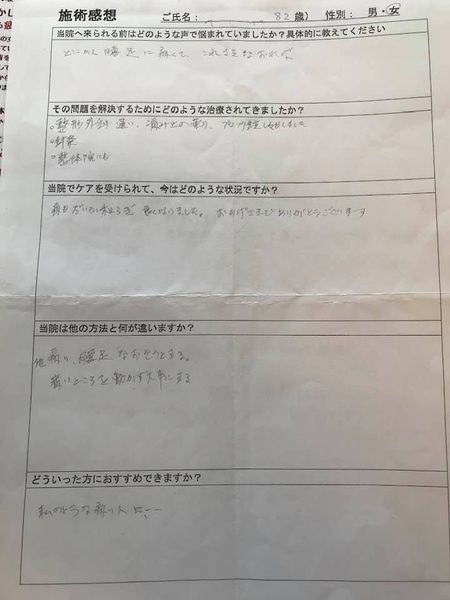 施術感想 ご氏名: 82歳) 性別: 男・女
当院へ来られる前はどのような声で悩まれていましたか?具体的に教えてください
とにかく腰 足に痛くて、これさえなおれば
その問題を解決するためにどのような治療されてきましたか?
○整形外科 通い、痛み止め薬、ブロック注 しました
○針
○整体 にも
当院でケアを受けられて、今はどのような状況ですか?
痛みがだいぶ 良くなりました。おかげさまで ありがとうございます
当院は他の方法と何が違いますか?
他 痛い、腰足 なおそうとする。
痛いところを動かす 大事にする
どういった方におすすめできますか?
私のような痛い人に、